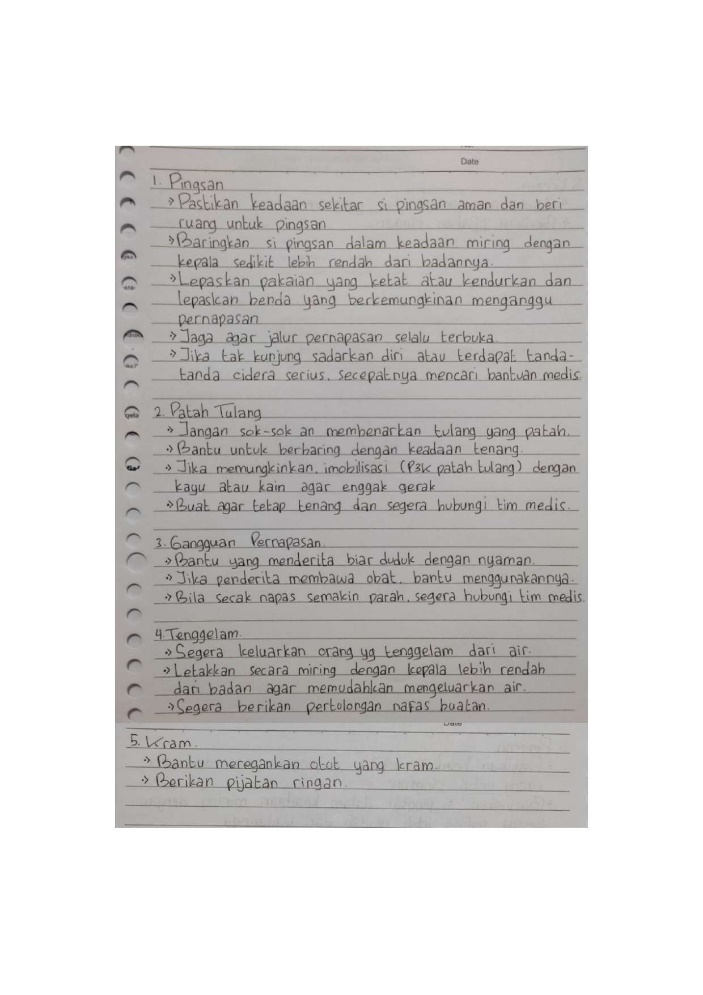 Date
1. Pingsan
→ Pastikan keadaan sekitar si pingsan aman dan beri
ruang untuk pingsan
→ Baringkan si pingsan dalam keadaan miring dengan
kepala sedikit lebih rendah dari badannya.
→ Lepaskan pakaian yang ketat atau kendurkan dan
lepaskan benda yang berkemungkinan menganggu
pernapasan
→ Jaga agar jalur pernapasan selalu terbuka.
→ Jika tak kunjung sadarkan diri atau terdapat tanda-
tanda cidera serius, secepatnya mencari bantuan medis.
2. Patah Tulang
→ Jangan sok-sok an membenarkan tulang yang patah.
→ Bantu untuk berbaring dengan keadaan tenang.
→ Jika memungkinkan, imobilisasi (P3K patah tulang) dengan
kayu atau kain agar enggak gerak
→ Buat agar tetap tenang dan segera hubungi tim medis.
3. Gangguan Pernapasan.
→ Bantu yang menderita biar duduk dengan nyaman.
→ Jika penderita membawa obat, bantu menggunakannya.
→ Bila secak napas semakin parah, segera hubungi tim medis.
4. Tenggelam.
→ Segera keluarkan orang yg tenggelam dari air.
→ Letakkan secara miring dengan kepala lebih rendah
dari badan agar memudahkan mengeluarkan air.
→ Segera berikan pertolongan nafas buatan.
Date
5. Kram.
→ Bantu meregankan otot yang kram.
→ Berikan pijatan ringan.